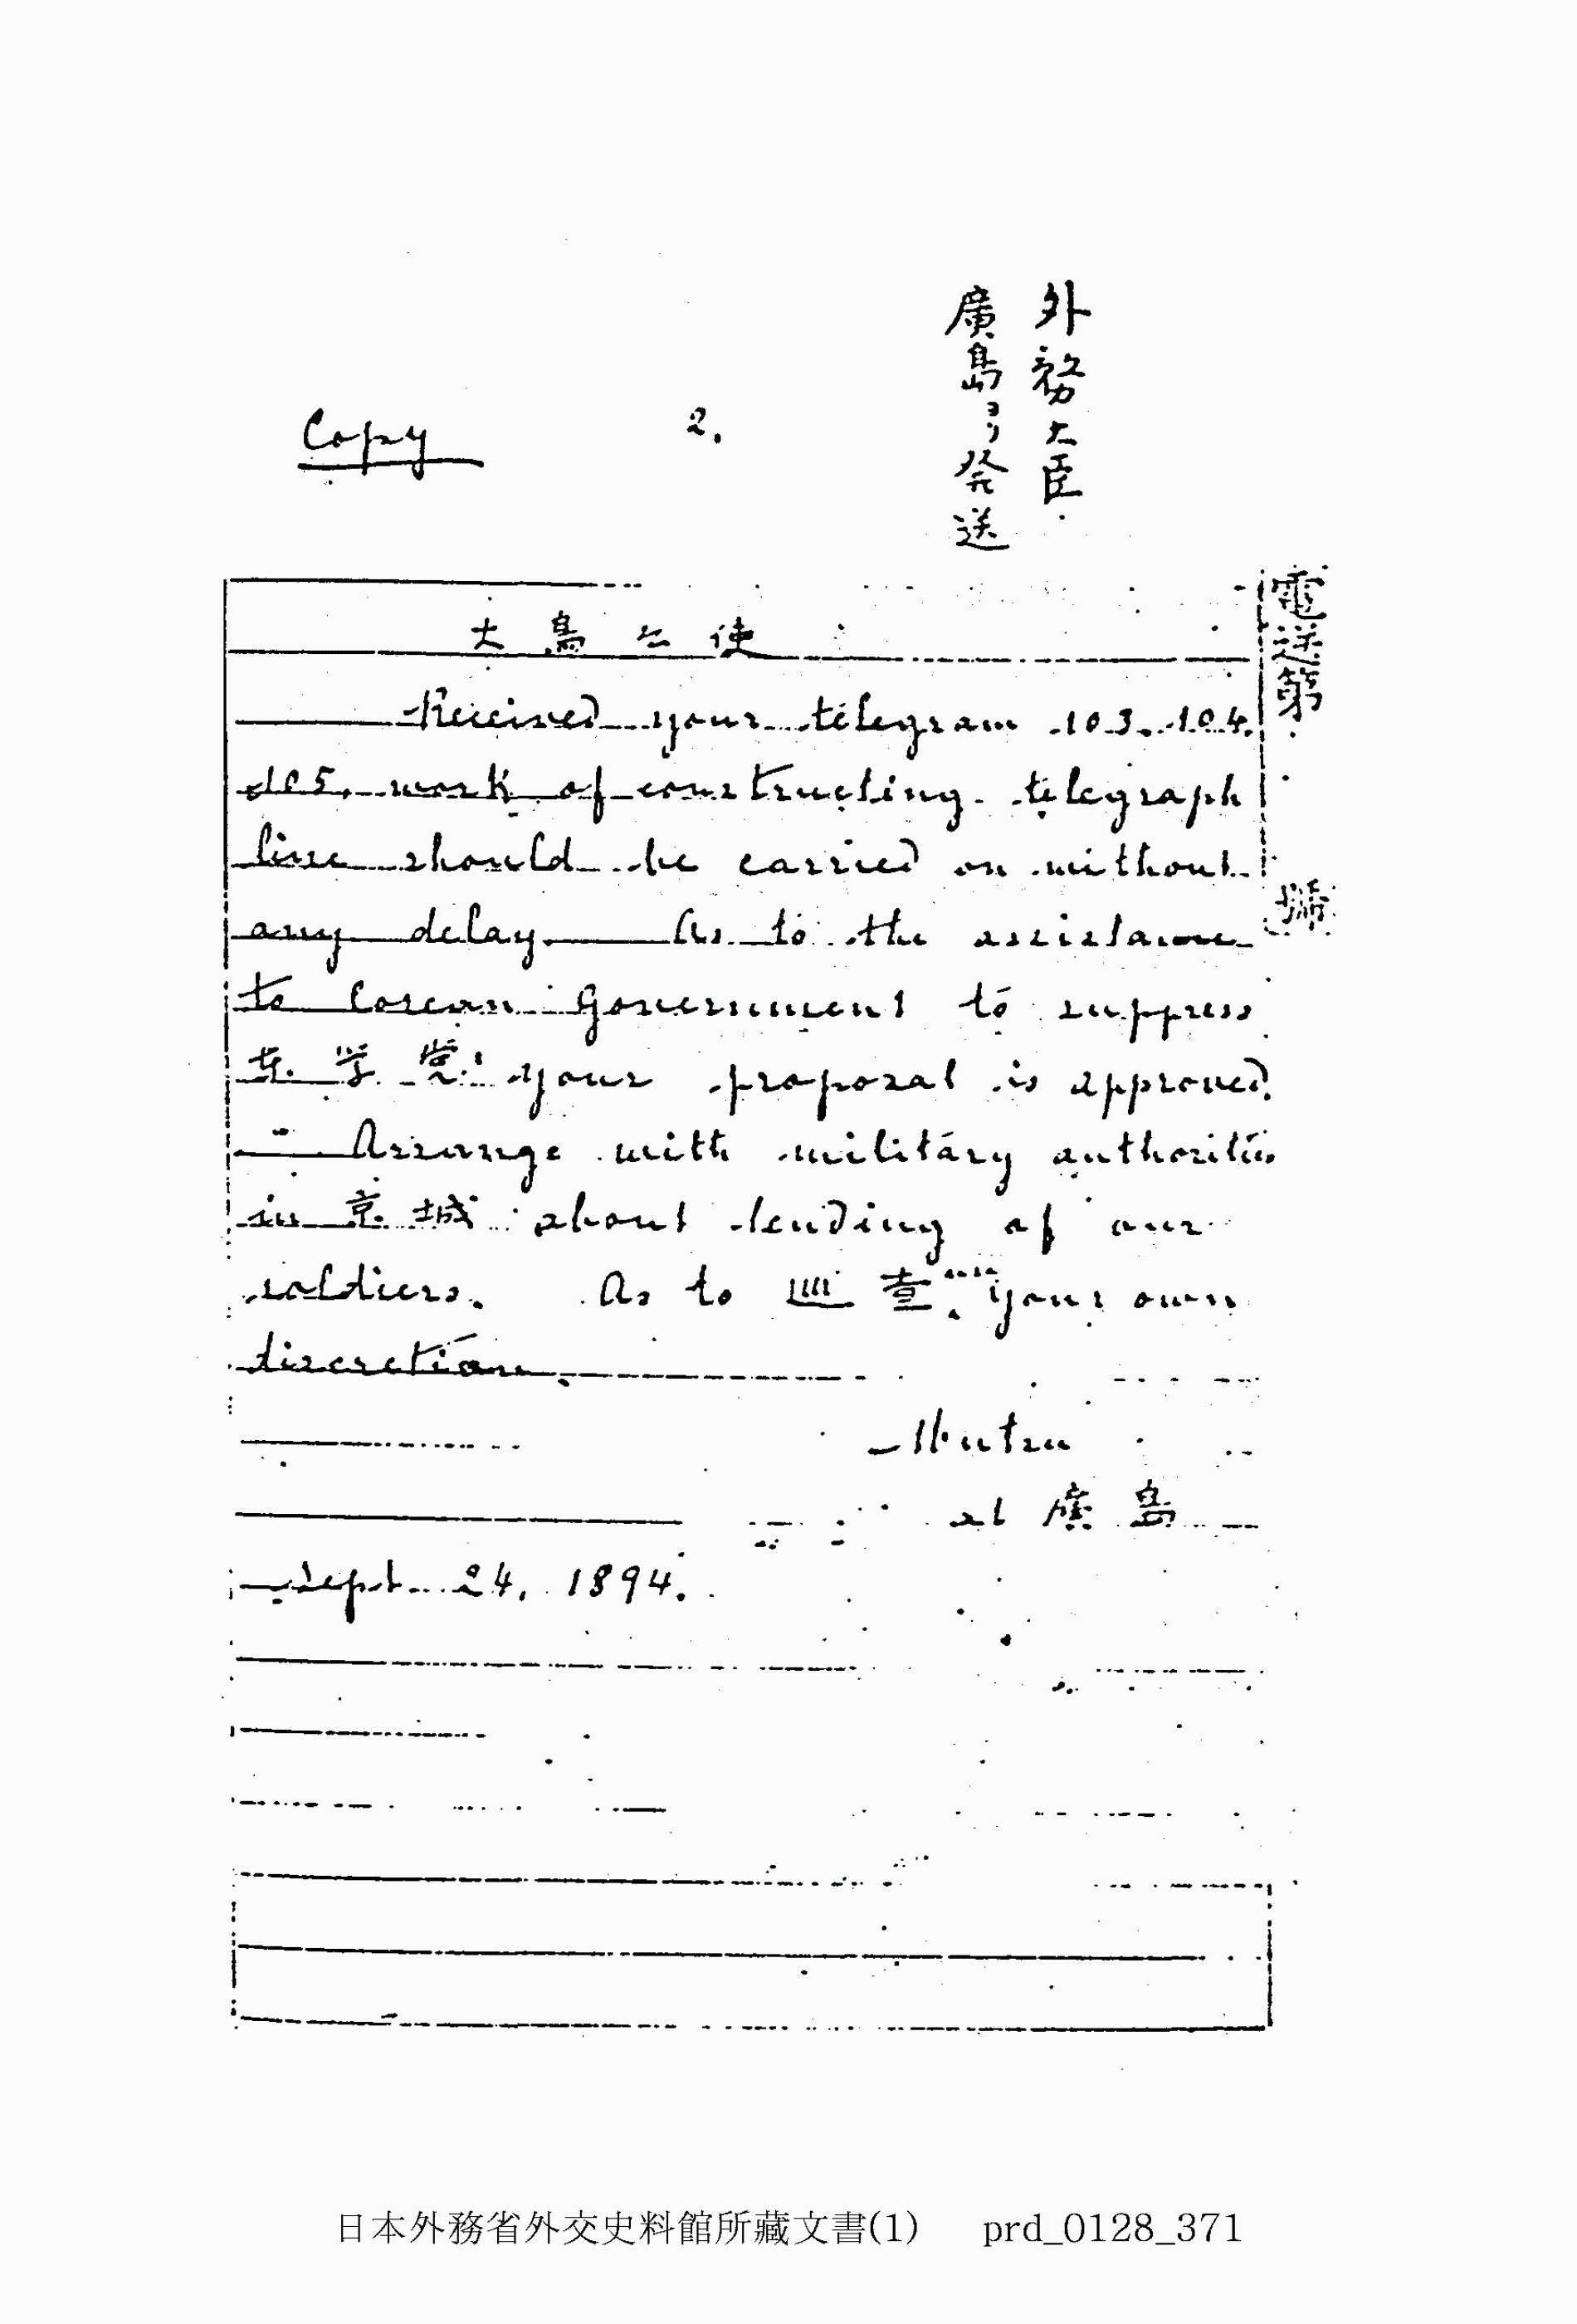 外務大臣
廣島ヨリ発送
Copy
2.
電送第 号
大鳥公使
Received your telegram 103. 104.
105. work of constructing telegraph
line should be carried on without
any delay. As to the assistance
to Corean Government to suppress
东学党 your proposal is approved.
Arrange with military authorities
in 京城 about lending of our
soldiers. As to 巡査 your own
discretion.
Mutsu
at 廣島
Sept. 24. 1894.
日本外務省外交史料館所藏文書(1) prd_0128_371